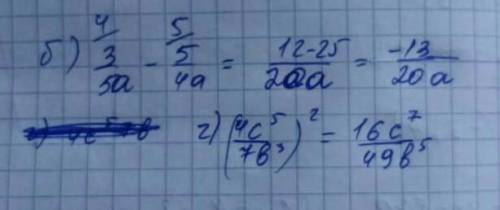 б) 4/ 3/5a - 5/ 5/4a = 12-25/20a = -13/20a
г) (4c⁵/7b³)² = 16c⁷/49b⁵